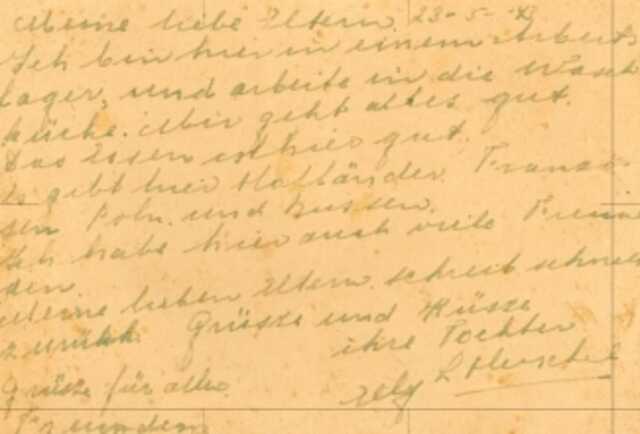 Meine liebe Eltern. 23-5-43
Ich bin hier in einem Arbeits
lager, und arbeite in die Wasch
küche. Mir geht alles gut.
Das Essen ist hier gut.
Es gibt hier Holländer. Franzo
sen Poln. und Russen.
Ich habe hier auch viele Freun
den
Meine lieben Eltern. schreib schnell
zurükk. Grüsse und Küsse
ihre Tochter
Grüsse für alle
Freunden